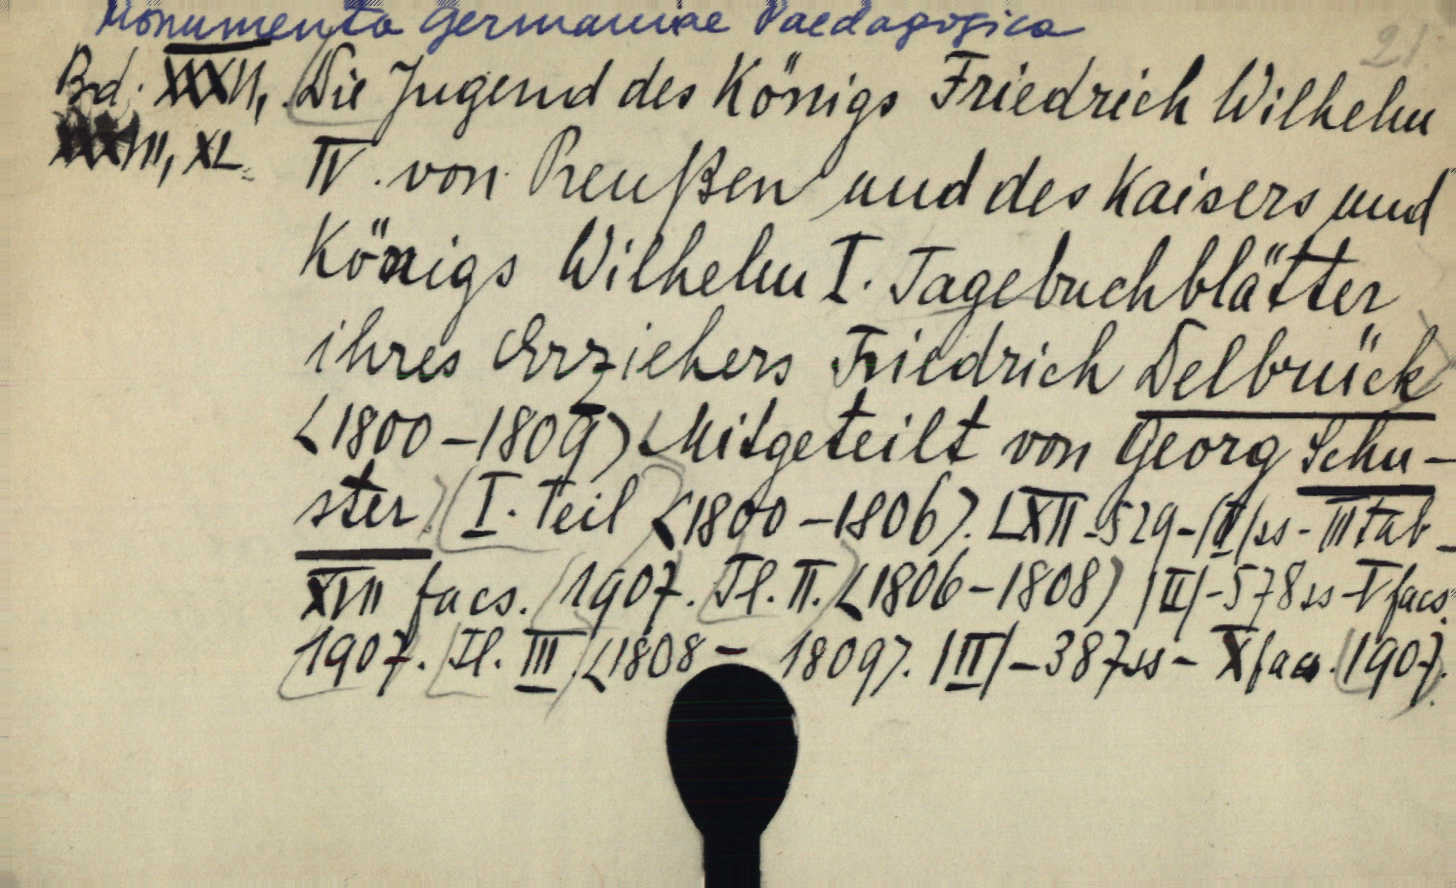 Monumenta Germaniae Paedagogica
21.
Bd. XXXVI, Die Jugend des Königs Friedrich Wilhelm
XXXVII, XL. IV. von Preußen und des Kaisers und
Königs Wilhelm I. Tagebuchblätter
ihres Erziehers Friedrich Delbrück
<1800-1809) Mitgeteilt von Georg Schu-
ster (I. Teil <1800-1806). LXII-529-|I|ss-III tab-
XVII facs. (1907. Tl. II. <1806-1808) |II|-578ss-V facs.
1907. Tl. III. <1808- 1809). |II|-387ss- X facs. 1907.